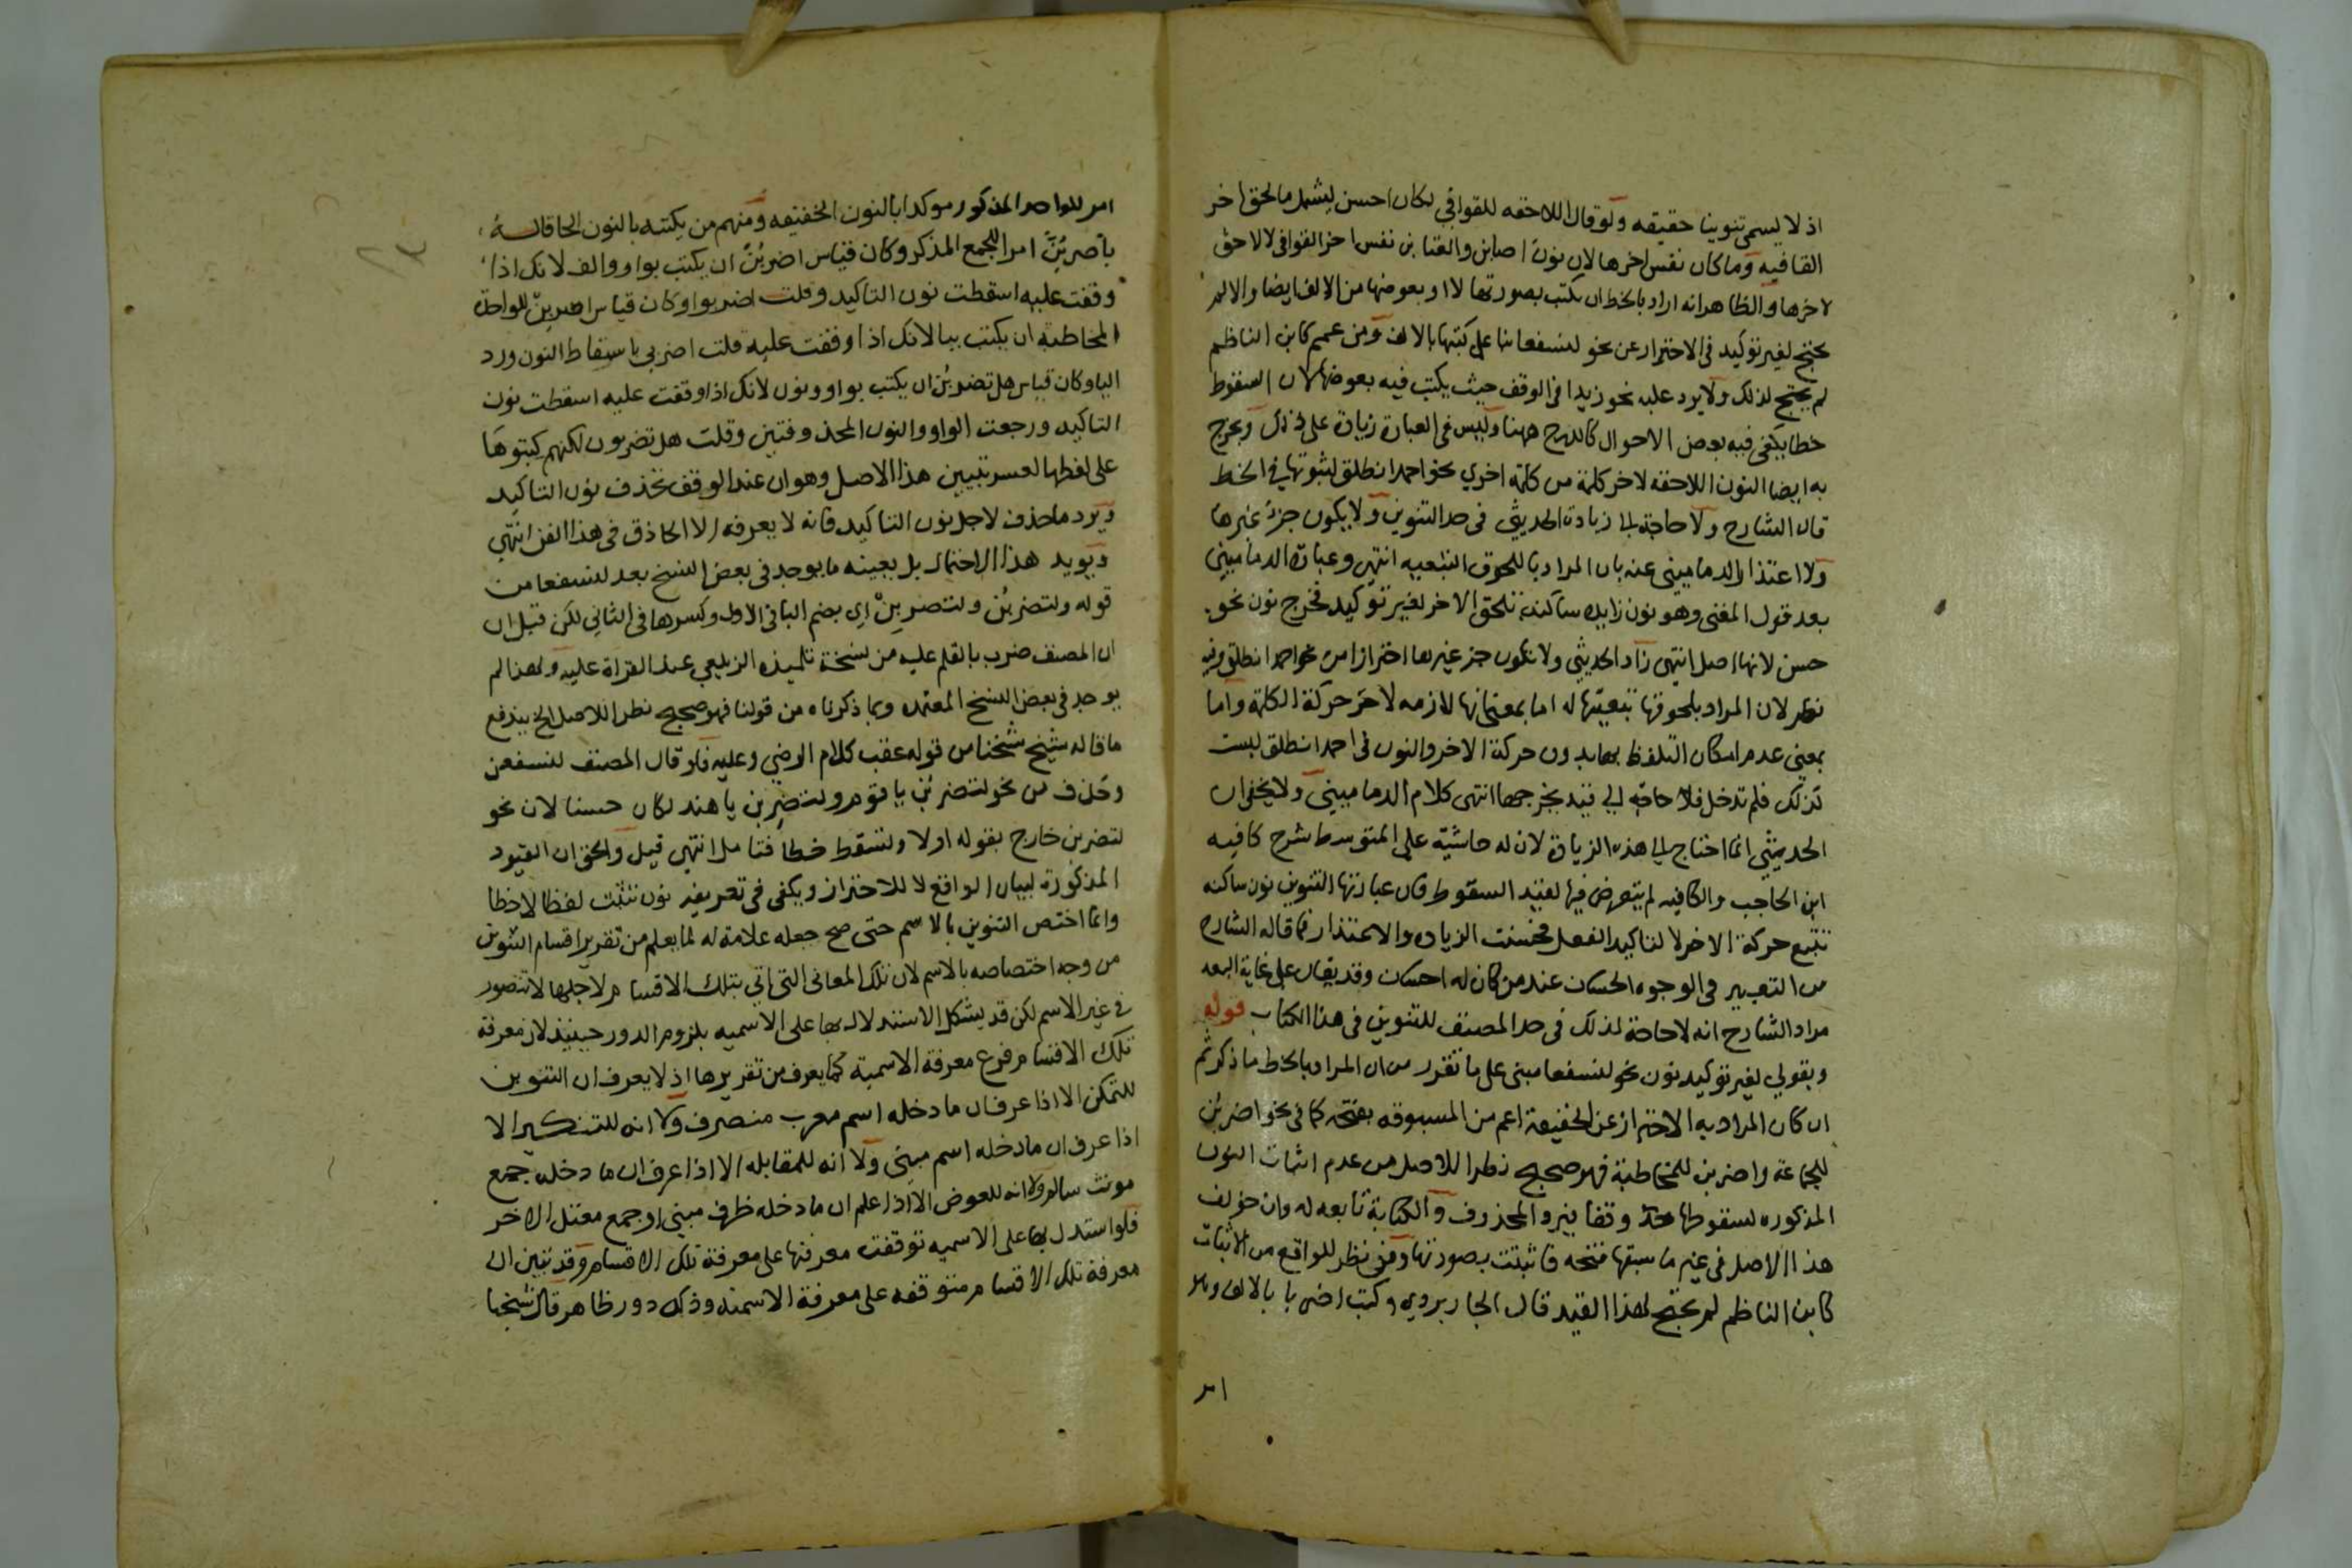 اذ لا يسمى تنوينا حقيقه ولو قال اللاحقه للقوافي لكان احسن ليشمل ما لحق اخر
القافيه وما كان نفس اخرها لان نون اصابن والعتابن نفس اخر القوافى لا لاحق
لاخرها والظاهر انه اراد بالخط ان يكتب بصورتها لا او بعوضها من الالف ايضا والا لم
يحتج لغير توكيد فى الاحتراز عن نحو لنسفعا بنا على كتبها بالالف ومن عمم كابن الناظم
لم يحتج لذلك ولا يرد عليه نحو زيدا فى الوقف حيث يكتب فيه بعوضها لان السقوط
خطا يكفى فيه بعض الاحوال كالدرج ههنا وليس فى العبارة زيادة على ذلك ويخرج
به ايضا النون اللاحقه لاخر كلمة من كلمة اخري نحو احمد انطلق لثبوتها في الخط
قال الشارح ولا حاجة الى زيادة الحديثي فى حد التنوين ولا يكون جزء غيرها
ولا اعتذار الدماميني عنه بان المراد باللحوق التبعيه انتهى وعبارة الدماميني
بعد قول المغنى وهو نون زايده ساكنة تلحق الاخر لغير توكيد فخرج نون نحو
حسن لانها اصل انتهى زاد الحديثي ولا تكون جز غيرها احترازا من نحو احمد انطلق وفيه
نظر لان المراد بلحوقها تبعيتها له اما بمعنى انها لازمه لاخر حركة الكلمة واما
بمعنى عدم امكان التلفظ بها بدون حركة الاخر والنون فى احمد انطلق ليست
كذلك فلم تدخل فلا حاجة الى قيد يخرجها انتهى كلام الدماميني ولا يخفى ان
الحديثي انما احتاج الى هذه الزيادة لان له حاشية على المتوسط شرح كافيه
ابن الحاجب والكافيه لم يتعرض فيها لقيد السقوط فان عبارتها التنوين نون ساكنه
تتبع حركة الاخر لا لتاكيد الفعل فحسنت الزياده والاعتذار فما قاله الشارح
من التعبير فى الوجوه الحسان عند من كان له احسان وقد يقال على غاية البعد
مراد الشارح انه لا حاجة لذلك فى حد المصنف للتنوين فى هذا الكتاب قوله
وبقولي لغير توكيد نون نحو لنسفعا مبنى على ما تقرر من ان المراد بالخط ما ذكر ثم
ان كان المراد به الاحتراز عن الخفيفة اعم من المسبوقه بفتحه كما فى نحو اضربن
للجماعة واضربن للمخاطبة فهو صحيح نظرا للاصل من عدم اثبات النون
المذكوره لسقوطها وقفا ويرد المحذوف والكتابة تابعه له وان خولف
هذا الاصل فى غير ما سبقها فتحه فاثبتت بصورتها ومن نظر للواقع من الاثبات
كابن الناظم لم يحتج لهذا القيد قال الجاربردي وكتب اضربا بالالف وهو
امر
امر للواحد المذكور موكدا بالنون الخفيفه ومنهم من يكتبه بالنون الحاقا له
باضربن امر للجمع المذكر وكان قياس اضربن ان يكتب بواو والف لانك اذا
وقفت عليه اسقطت نون التاكيد وقلت اضربوا وكان قياس اضربن للواحدة
المخاطبة ان يكتب بيا لانك اذا وقفت عليه قلت اضربى باسقاط النون ورد
اليا وكان قياس هل تضربن ان يكتب بواو ونون لانك اذا وقفت عليه اسقطت نون
التاكيد ورجعت الواو والنون المحذوفتين وقلت هل تضربون لكنهم كتبوها
على لفظها لعسر تبيين هذا الاصل وهو ان عند الوقف تحذف نون التاكيد
ويرد ما حذف لاجل نون التاكيد فانه لا يعرفه الا الحاذق فى هذا الفن انتهى
ويويد هذا الاحتمال بل يعينه ما يوجد فى بعض النسخ بعد لنسفعا من
قوله ولتضربن ولتضربن اي بضم البا فى الاول وكسرها فى الثاني لكن قيل ان
ان المصنف ضرب بالقلم عليه من نسخة تلميذه الزيلعي عند القراة عليه ولهذا لم
يوجد فى بعض النسخ المعتمده وبما ذكرناه من قولنا فهو صحيح نظرا للاصل الخ يندفع
ما قاله شيخ شيخنا من قوله عقب كلام الرضي وعليه فلو قال المصنف لنسفعن
وحذف من نحو لتضربن يا قوم ولتضربن يا هند لكان حسنا لان نحو
لتضربن خارج بقوله اولا وتسقط خطا فتامل انتهى قيل والحق ان القيود
المذكورة لبيان الواقع لا للاحتراز ويكفى فى تعريفه نون تثبت لفظا لا خطا
وانما اختص التنوين بالاسم حتى صح جعله علامة له لما يعلم من تقرير اقسام التنوين
من وجه اختصاصه بالاسم لان تلك المعانى التى اتي بتلك الاقسام لاجلها لا تتصور
فى غير الاسم لكن قد يشكل الاستدلال بها على الاسميه بلزوم الدور حينيذ لان معرفة
تلك الاقسام فرع معرفة الاسمية كما يعرف من تقريرها اذ لا يعرف ان التنوين
للتمكن الا اذا عرف ان ما دخله اسم معرب منصرف ولا انه للتنكير الا
اذا عرف ان ما دخله اسم مبنى ولا انه للمقابله الا اذا عرف ان ما دخله جمع
مونث سالم ولا انه للعوض الا اذا علم ان ما دخله ظرف مبني او جمع معتل الاخر
فلو استدل بها على الاسميه توقفت معرفتها على معرفة تلك الاقسام وقد تبين ان
معرفة تلك الاقسام متوقفه على معرفة الاسميه وذلك دور ظاهر قال شيخنا